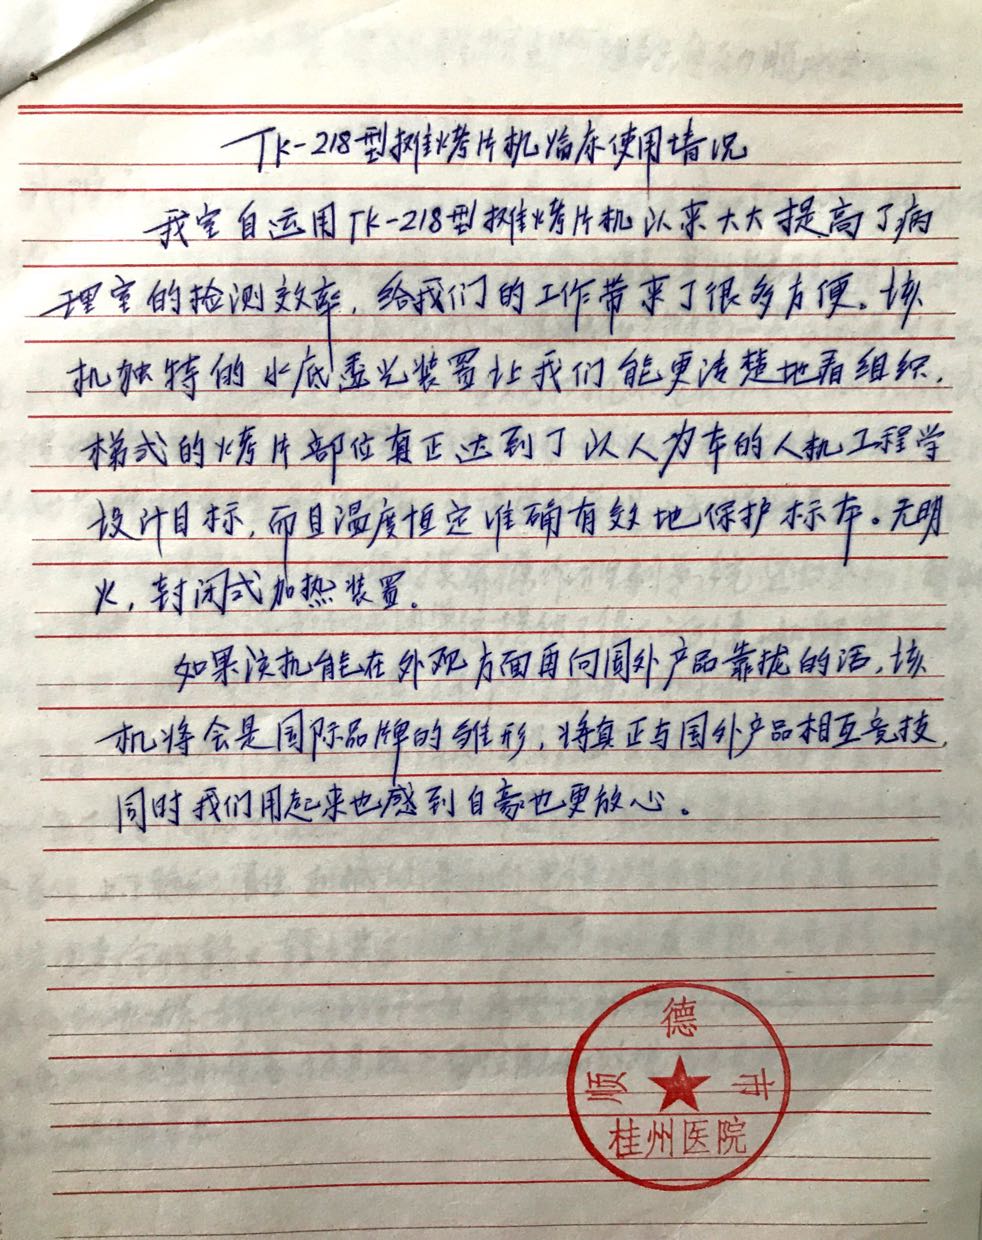 TK-218型摊烤片机临床使用情况
我室自运用TK-218型摊烤片机以来大大提高了病
理室的检测效率，给我们的工作带来了很多方便。该
机独特的水底透光装置让我们能更清楚地看组织，
梯式的烤片部位真正达到了以人为本的人机工程学
设计目标，而且温度恒定准确有效地保护标本。无明
火，封闭式加热装置。
如果该机能在外观方面再向国外产品靠拢的话，该
机将会是国际品牌的雏形，将真正与国外产品相互竞技，
同时我们用起来也感到自豪也更放心。
顺德市
桂州医院